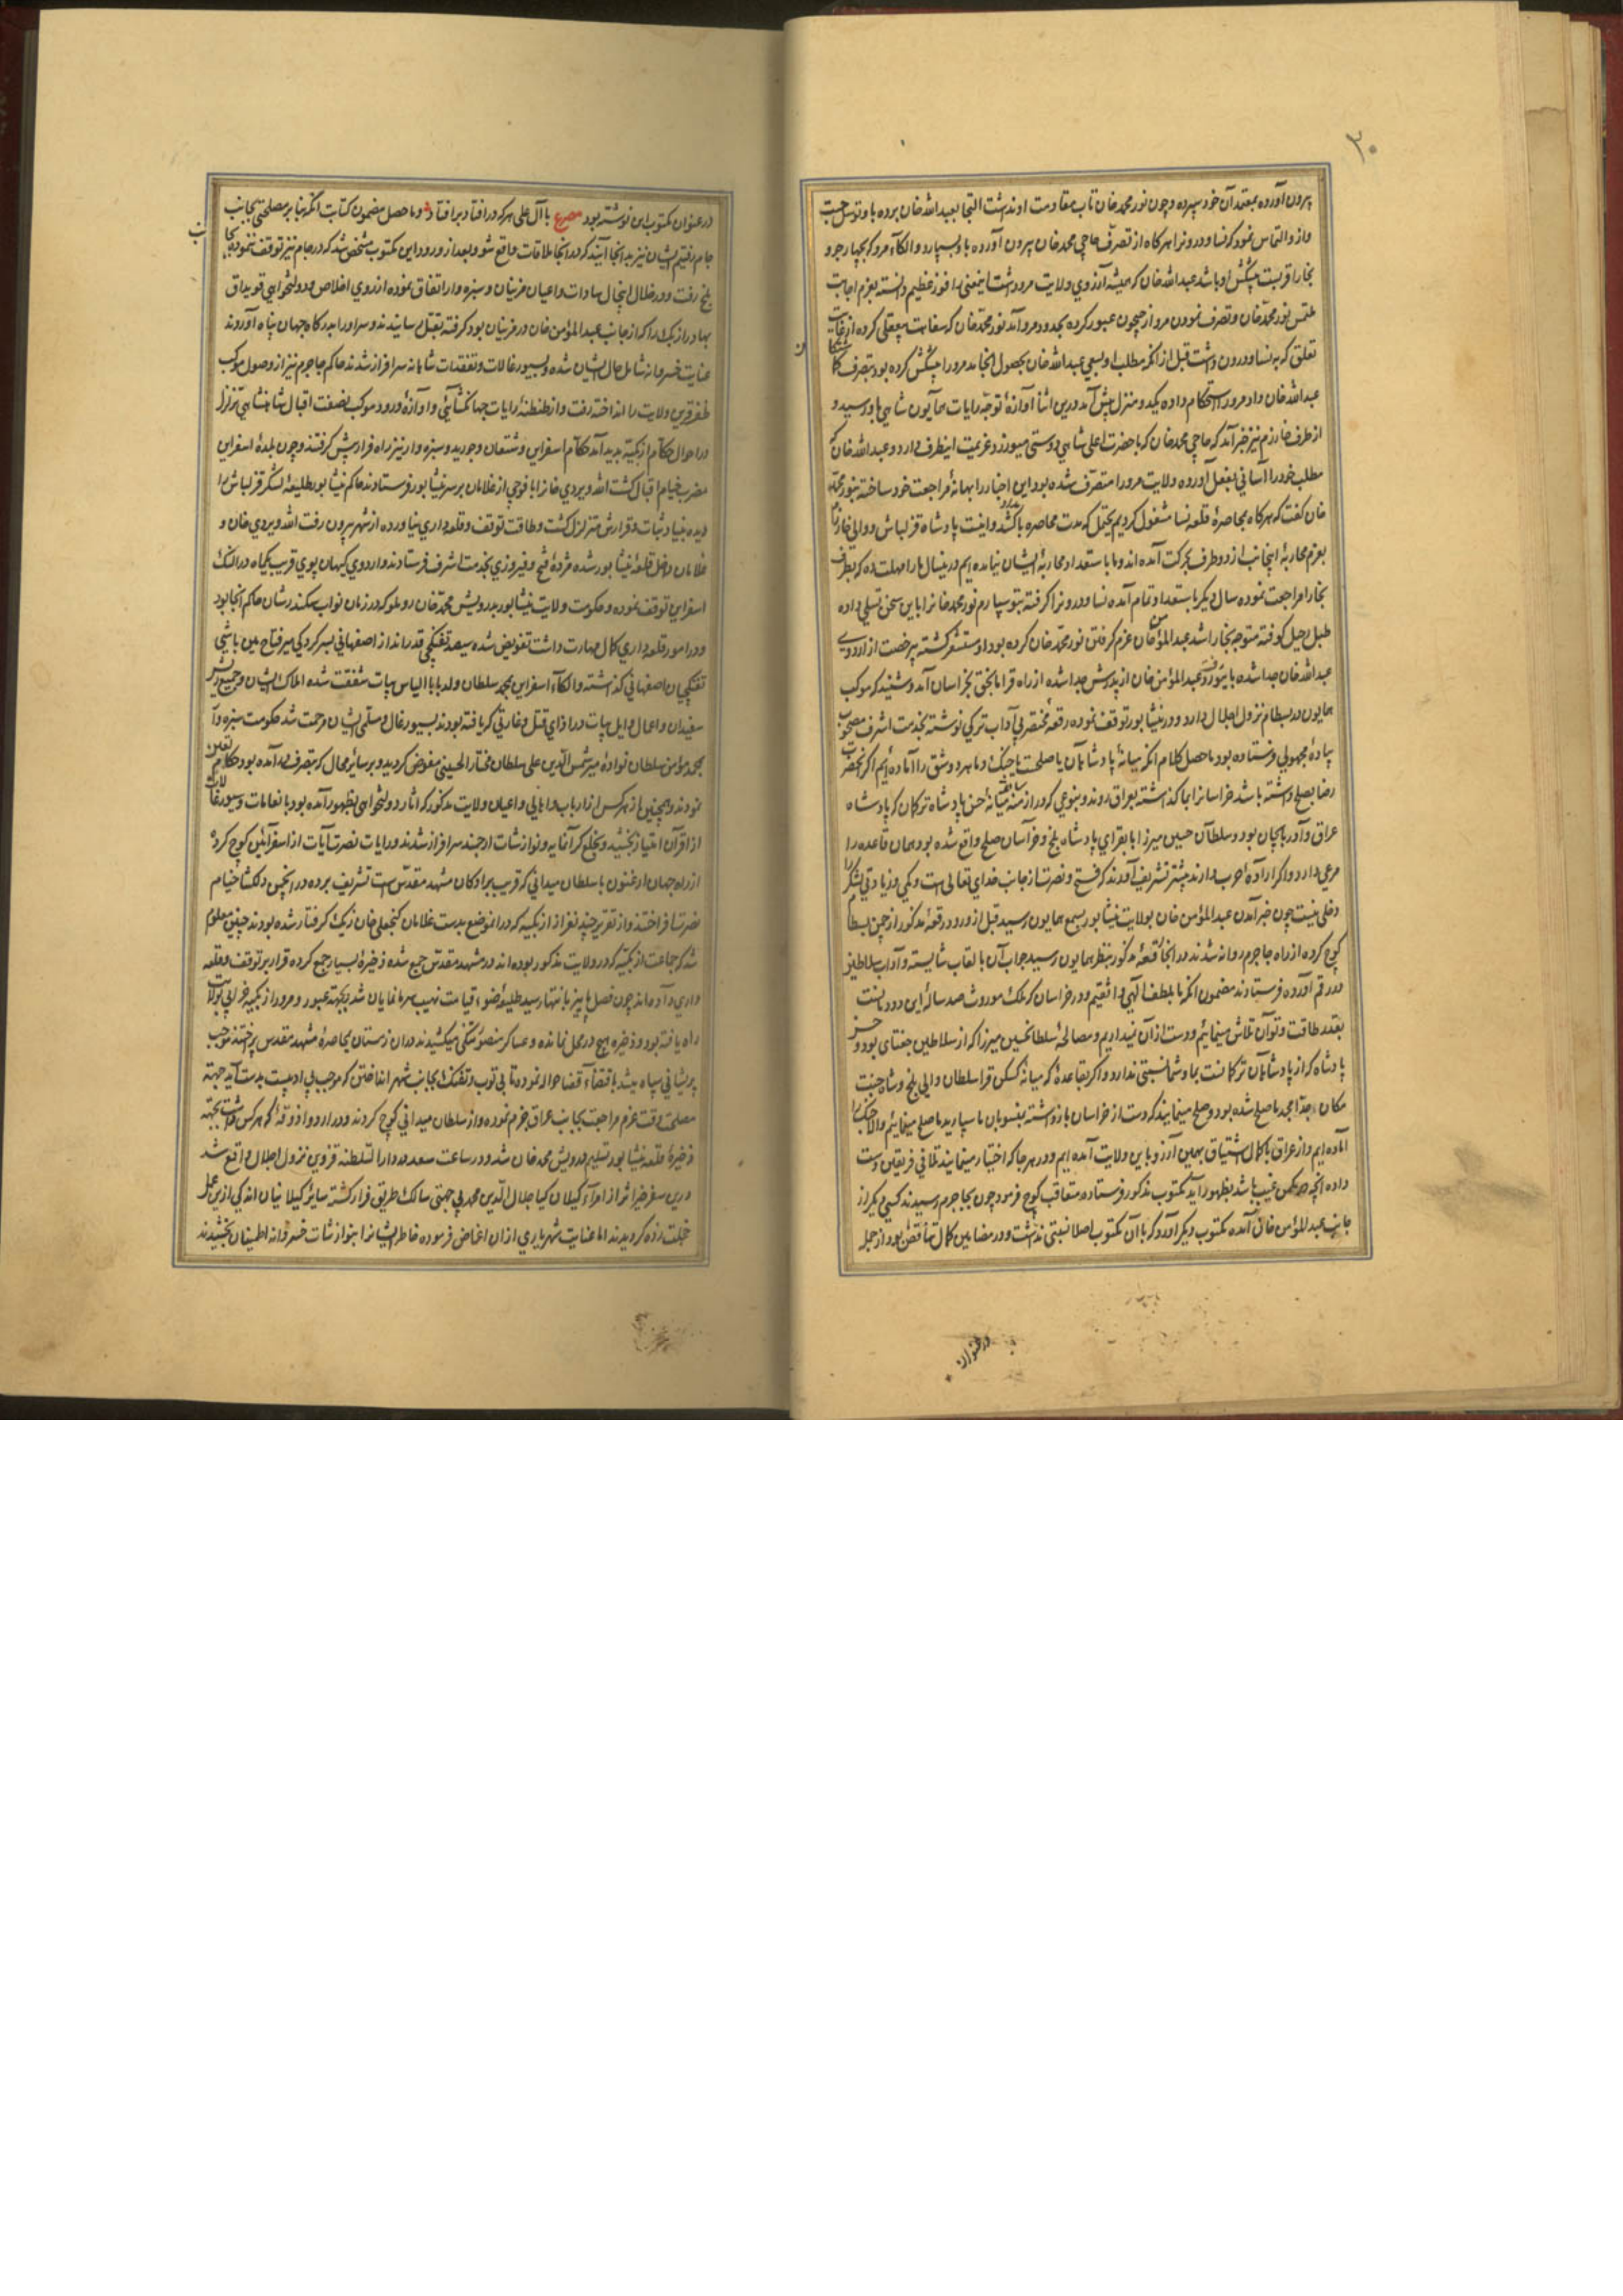 ۳۰
بیرون آورده بمعتمدان خود سپرده و چون نور محمد خان تاب مقاومت او نداشت التجا بعبدالله خان برده باو توسل جست
و ازو التماس نمود که نسا و درونرا هرکاه از تصرف حاجی محمد خان بیرون آورده باو بسپارد و الکاء مرو که بچهارجو و
بخارا قریبست پیشکش او باشد عبدالله خان که همیشه آرزوی ولایت مرو داشت اینمعنی را فوز عظیم دانسته بعزم اجابت
ملتمس نور محمد خان و تصرف نمودن مرو از جیحون عبور کرده بحدود مرو آمد نور محمد خان که سفاهت و بیعقلی کرده از غایت
تعلق که به نسا و درون داشت قبل از آنکه مطلب او بسعی عبدالله خان بحصول انجامد مرو را پیشکش کرده بود بتصرف
عبدالله خان داد مرو را استحکام داده یکدو منزل پیش آمد درین اثنا آوازهٔ توجه رایات همایون شاهی باو رسید و
از طرف خوارزم نیز خبر آمد که حاجی محمد خان که با حضرت اعلی شاهی دوستی میورزد عزیمت اینطرف دارد و عبدالله خان که
مطلب خود را آسانی بفعل آورده ولایت مرو را متصرف شده بود این اخبار را بهانهٔ مراجعت خود ساخته بنور محمد
خان گفت که هرکاه بمحاصرهٔ قلعه نسا مشغول کردیم یحتمل که مدت محاصره بامتداد کشد و اینست پادشاه قزلباش و والی خوارزم
بعزم محاربهٔ اینجانب از دو طرف بحرکت آمده اند و ما باستعداد محاربهٔ ایشان نیامده ایم درینسال ما را مهلت ده که بطرف
بخارا مراجعت نموده سال دیکر با استعداد تمام آمده نسا و درونرا کرفته بتو سپارم نور محمد خانرا باین سخن تسلی داده
طبل رحیل کوفته متوجه بخارا شد عبدالمؤمن خان عزم کرفتن نور محمد خان کرده بود او مستشعر کشته بیرخصت از اردوی
عبدالله خان جدا شده بابیورد رفت و عبدالمؤمن خان از پدرش جدا شده از راه قرایاپختی بخراسان آمد و شنید که موکب
همایون در بسطام نزول اجلال دارد و در نیشابور توقف نموده رقعهٔ مختصر بی آداب ترکی نوشته بخدمت اشرف مصحوب
پیادهٔ مجهولی فرستاده بود ماحصل کلام آنکه میانهٔ پادشاهان یا صلحست یا جنک و ما هر دو شق را آماده ایم اکر آنحضرت
رضا بصلح داشته باشد خراسانرا بما کذاشته بعراق روند و بنوعی که در ازمنهٔ سابقه میانهٔ حسن پادشاه ترکمان که پادشاه
عراق و آذربایجان بود و سلطان حسین میرزا بایقرای پادشاه بلخ و خراسان صلح واقع شده بود همان قاعده را
مرعی دارد و اکر ارادهٔ حرب دارند پیشتر تشریف آورند که فتح و نصرت از جانب خدای تعالی است و کمی و زیادتی لشکر را
دخلی نیست چون خبر آمدن عبدالمؤمن خان بولایت نیشابور بسمع همایون رسید قبل از ورود رقعهٔ مذکور از چمن بسطام
کوچ کرده از راه جاجرم روانه شدند در آنجا رقعهٔ مذکور بنظر همایون رسید جواب آن بالقاب شایسته و آداب سلاطین
در رقم آورده فرستادند مضمون آنکه ما بلطف الهی واثقیم و در خراسان که ملک موروث صد سالهٔ این دودمانست
بقدر طاقت و توان تلاش مینمائیم و دست از آن نمیداریم و مصالحهٔ سلطان حسین میرزا که از سلاطین جغتای بود و حسن
پادشاه که از پادشاهان ترکمانست بما و شما نسبتی ندارد و اکر بقاعدهٔ که میانهٔ کسکن قرا سلطان والی بلخ و شاه جنت
مکان جد امجد ما صلح شده بود صلح مینمایند که دست از خراسان بازداشته بمنسوبان ما سپارید ما صلح مینمائیم والا جنک را
آماده ایم و از عراق با کمال اشتیاق بهمین آرزو باین ولایت آمده ایم و در هر جا که اختیار مینمایند تلاقی فریقین دست
داده آنچه در مکمن غیب باشد بظهور آید مکتوب مذکور فرستاده متعاقب کوچ فرمود چون بجاجرم رسیدند کسی دیکر از
جانب عبدالمؤمن خان آمده مکتوب دیکر آورد که با آن مکتوب اصلا نسبتی نداشت و در مضامین کمال تناقض بود از جمله
در عنوان
در عنوان مکتوب این نوشته بود مصرع با آل علی هر که در افتاد بر افتاد و ماحصل مضمون کتابت آنکه بنا بر مصلحتی بجانب
جام رفتیم ایشان نیز بدانجا آیند که در آنجا ملاقات واقع شود بعد از ورود این مکتوب مشخص شد که در جام نیز توقف ننموده بجانب
بلخ رفت و در خلال اینحال سادات و اعیان مزینان و سبزوار اتفاق نموده از روی اخلاص و دولتخواهی قوپداق
بهادر ازبک را که از جانب عبدالمؤمن خان در مزینان بود کرفته بقتل رسانیدند و سر او را بدرکاه جهان پناه آوردند
عنایت خسروانه شامل حال ایشان شده بسیورغالات و تفقدات شاهانه سرافراز شدند حاکم جاجرم نیز از وصول موکب
ظفر قرین ولایت را انداخته رفت و از طنطنهٔ رایات جهانکشائی و آوازهٔ ورود موکب نصفت اقبال شاهنشاهی تزلزل
در احوال حکام ازبکیه پدید آمد حکام اسفراین و شقان و جوربد و سبزوار نیز راه فرار پیش کرفتند و چون بلدهٔ اسفراین
مضرب خیام اقبال کشت الله ویردی خانرا با فوجی از غلامان بر سر نیشابور فرستادند حاکم نیشابور طلیعهٔ لشکر قزلباش را
دیده بنیاد ثبات و قرارش متزلزل کشت و طاقت توقف و قلعه داری نیاورده از شهر بیرون رفت الله ویردی خان و
غلامان داخل قلعهٔ نیشابور شده مژدهٔ فتح و فیروزی بخدمت اشرف فرستادند و اردوی کیهان پوی قریب بیکماه در النک
اسفراین توقف نموده و حکومت ولایت نیشابور بدرویش محمد خان روملو که در زمان نواب سکندر شان حاکم آنجا بود
و در امور قلعه داری کمال مهارت داشت تفویض شده سیصد تفنکچی قدرانداز اصفهانی بسرکردکی میر فتاح مین باشی
تفنکچیان اصفهانی کذاشته و الکاء اسفراین بمحمد سلطان ولد بابا الیاس بیات شفقت شده املاک ایشان و جمیع ریش
سفیدان و اعمال و ایل بیات در ازای قتل و غارتی که یافته بودند بسیورغال و مسلمی ایشان مرحمت شد حکومت سبزوار
بمحمد مؤمن سلطان نوادهٔ میر شمس الدین علی سلطان مختار الحسینی مفوض کردید و بر سایر محال که بتصرف در آمده بود حکام تعیین
نمودند و همچنین از هر کس از ارباب و اهالی و اعیان ولایت مذکور که آثار دولتخواهی بظهور آمده بود بانعامات و سیورغالات
از اقران امتیاز بخشید و بخلع کرانمایه و نوازشات ارجمند سرافراز شدند و رایات نصرت آیات از اسفراین کوچ کرده
از راه جهان ارغنون باسلطان میدانی که قریب برادکان مشهد مقدس است تشریف برده در آنچمن دلکشا خیام
نصرت افراختند و از تقریر چند نفر از ازبکیه که در انموضع بدست غلامان کنجعلی خان زیک کرفتار شده بودند چنین معلوم
شد که جماعت ازبکیه که در ولایت مذکور بوده اند در مشهد مقدس جمع شده ذخیرهٔ بسیار جمع کرده قرار بر توقف و قلعه
داری داده اند چون فصل پاییز بانتها رسید طلیعهٔ ضوء قیامت نهیب سرما نمایان شد و بجهته عبور و مرور ازبکیه خرابی بولایت
راه یافته بود و ذخیره هیچ در محل نمانده و عساکر منصور تنکی میکشیدند در ان زمستان بمحاصرهٔ مشهد مقدس پرداختند موجب
پریشانی سپاه میشد باقتضاء قضا حواله نموده تا بی توب و تفنک بجانب شهر انداختن که موجب بی ادبیست بدست آید جهته
مصلحت وقت عزم مراجعت بجانب عراق جزم نموده و از سلطان میدانی کوچ کردند و در اردو آذوقهٔ که هر کس داشت بجهته
ذخیرهٔ قلعه نیشابور تسلیم درویش محمد خان شد و در ساعت سعد در دارالسلطنه قزوین نزول اجلال واقع شد
درین سفر خیر اثر از امراء کیلان کیا جلال الدین محمد بی جهتی سالک طریق فرار کشته سایر کیلانیان اندکی ازین عمل
خجلت زده کردیدند اما عنایت شهریاری از ان اغماض فرموده خاطر ایشانرا بنوازشات خسروانه اطمینان بخشیدند